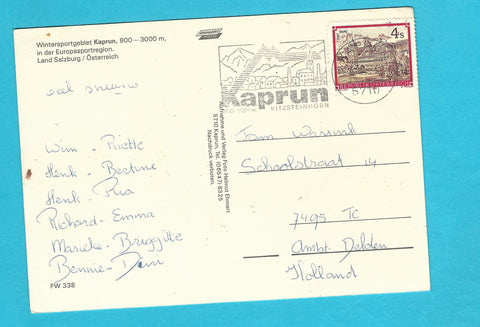 Wintersportgebiet Kaprun, 800 – 3000 m,
in der Europasportregion.
Land Salzburg / Österreich
Wim - Rietle
Henk - Bertine
Henk - Ria
Richard - Emma
Marieke - Bruggitte
Bennie -
FW 338
Aufnahme und Verlag Foto Helmut Ehmert
5710 Kaprun, Tel. (06547) 8325
Nachdruck verboten.
Kaprun
KITZSTEINHORN
5710
4 s
REPUBLIK ÖSTERREICH
Fam Wassink
Schoolstraat 14
7495 TC
Ambt-Delden
Holland